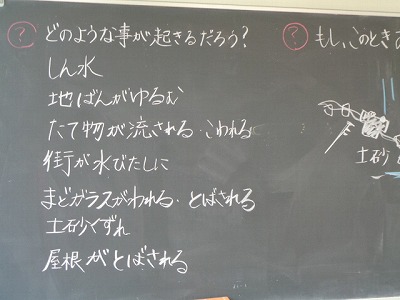 ? どのような事が起きるだろう?
しん水
地ばんがゆるむ
たて物が流される・こわれる
街が水びたしに
まどガラスがわれる・とばされる
土砂くずれ
屋根がとばされる
? もし、このとき
土砂